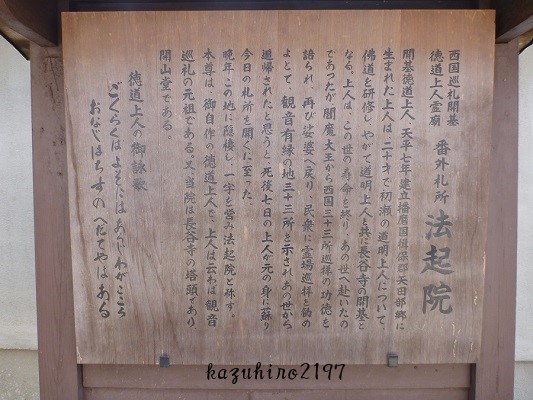 西国巡礼開基
徳道上人霊廟
番外札所 法起院
開基徳道上人、天平七年建立播磨国揖保郡矢田部郷に
生まれた上人は二十才で初瀬の道明上人について、
佛道を研修し、やがて道明上人と共に長谷寺の開基と
なる。上人は、この世の寿命を終り、あの世へ赴いたの
であったが閻魔大王から西国三十三所巡拝の功徳を
語られ、再び娑婆へ戻り、民衆に霊場巡拝を勧め
よとて、観音有縁の地三十三所を示されあの世から
追帰されたと思うと、死後七日の上人が元の身に蘇り
今日の札所を開くに至った。
晩年、この地に隠棲し、一宇を営み法起院と称す。
本尊は、御自作の徳道上人で、上人は云わば観音
巡礼の元祖である。又、当院は長谷寺の塔頭であり
開山堂である。
徳道上人の御詠歌
ごくらくはよそにはあらじわがこころ
おなじはちすのへだてやはある
kazuhiro2197